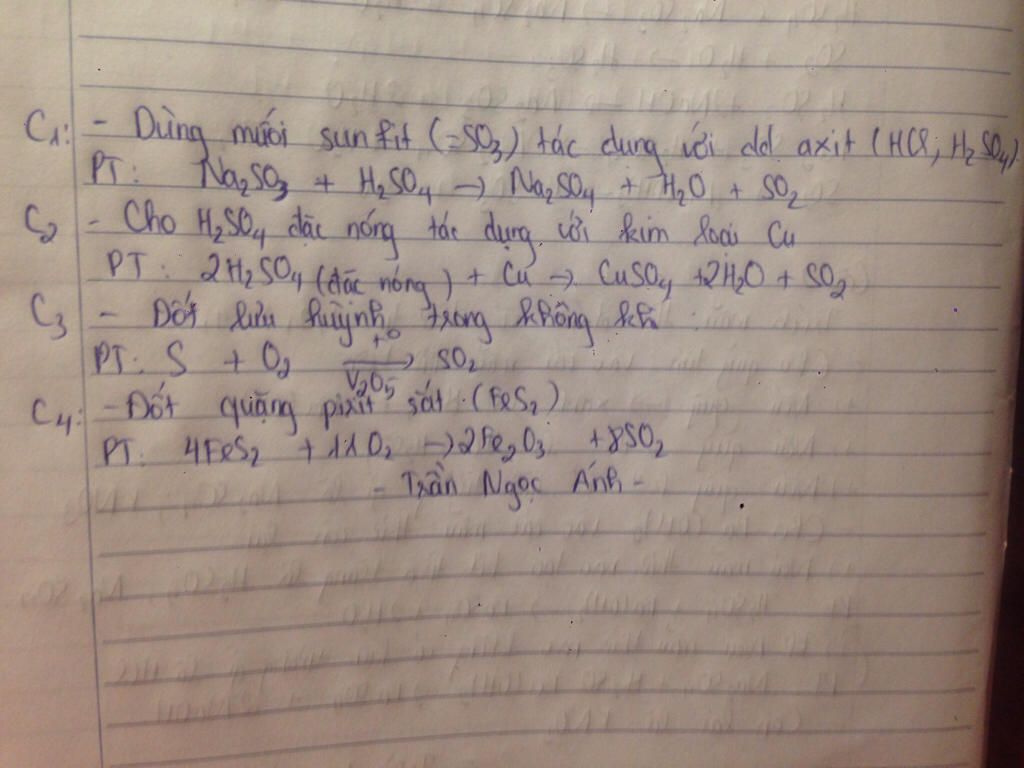 C₁: - Dùng muối sunfit (=SO₃) tác dụng với dd axit (HCl; H₂SO₄).
PT: Na₂SO₃ + H₂SO₄ → Na₂SO₄ + H₂O + SO₂
C₂ - Cho H₂SO₄ đặc nóng tác dụng với kim loại Cu
PT: 2H₂SO₄ (đặc nóng) + Cu → CuSO₄ + 2H₂O + SO₂
C₃ - Đốt lưu huỳnh trong không khí :
PT: S + O₂ →(t°, V₂O₅) SO₂
C₄: - Đốt quặng pixit sắt. (FeS₂)
PT: 4FeS₂ + 11O₂ → 2Fe₂O₃ + 8SO₂
- Trần Ngọc Ánh -